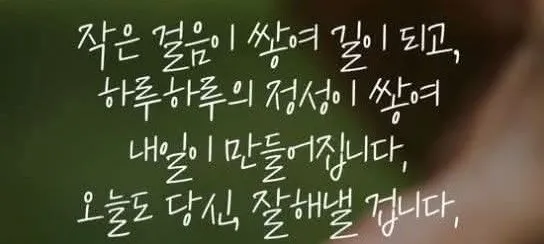 작은 걸음이 쌓여 길이 되고,
하루하루의 정성이 쌓여
내일이 만들어집니다,
오늘도 당신, 잘해낼 겁니다,